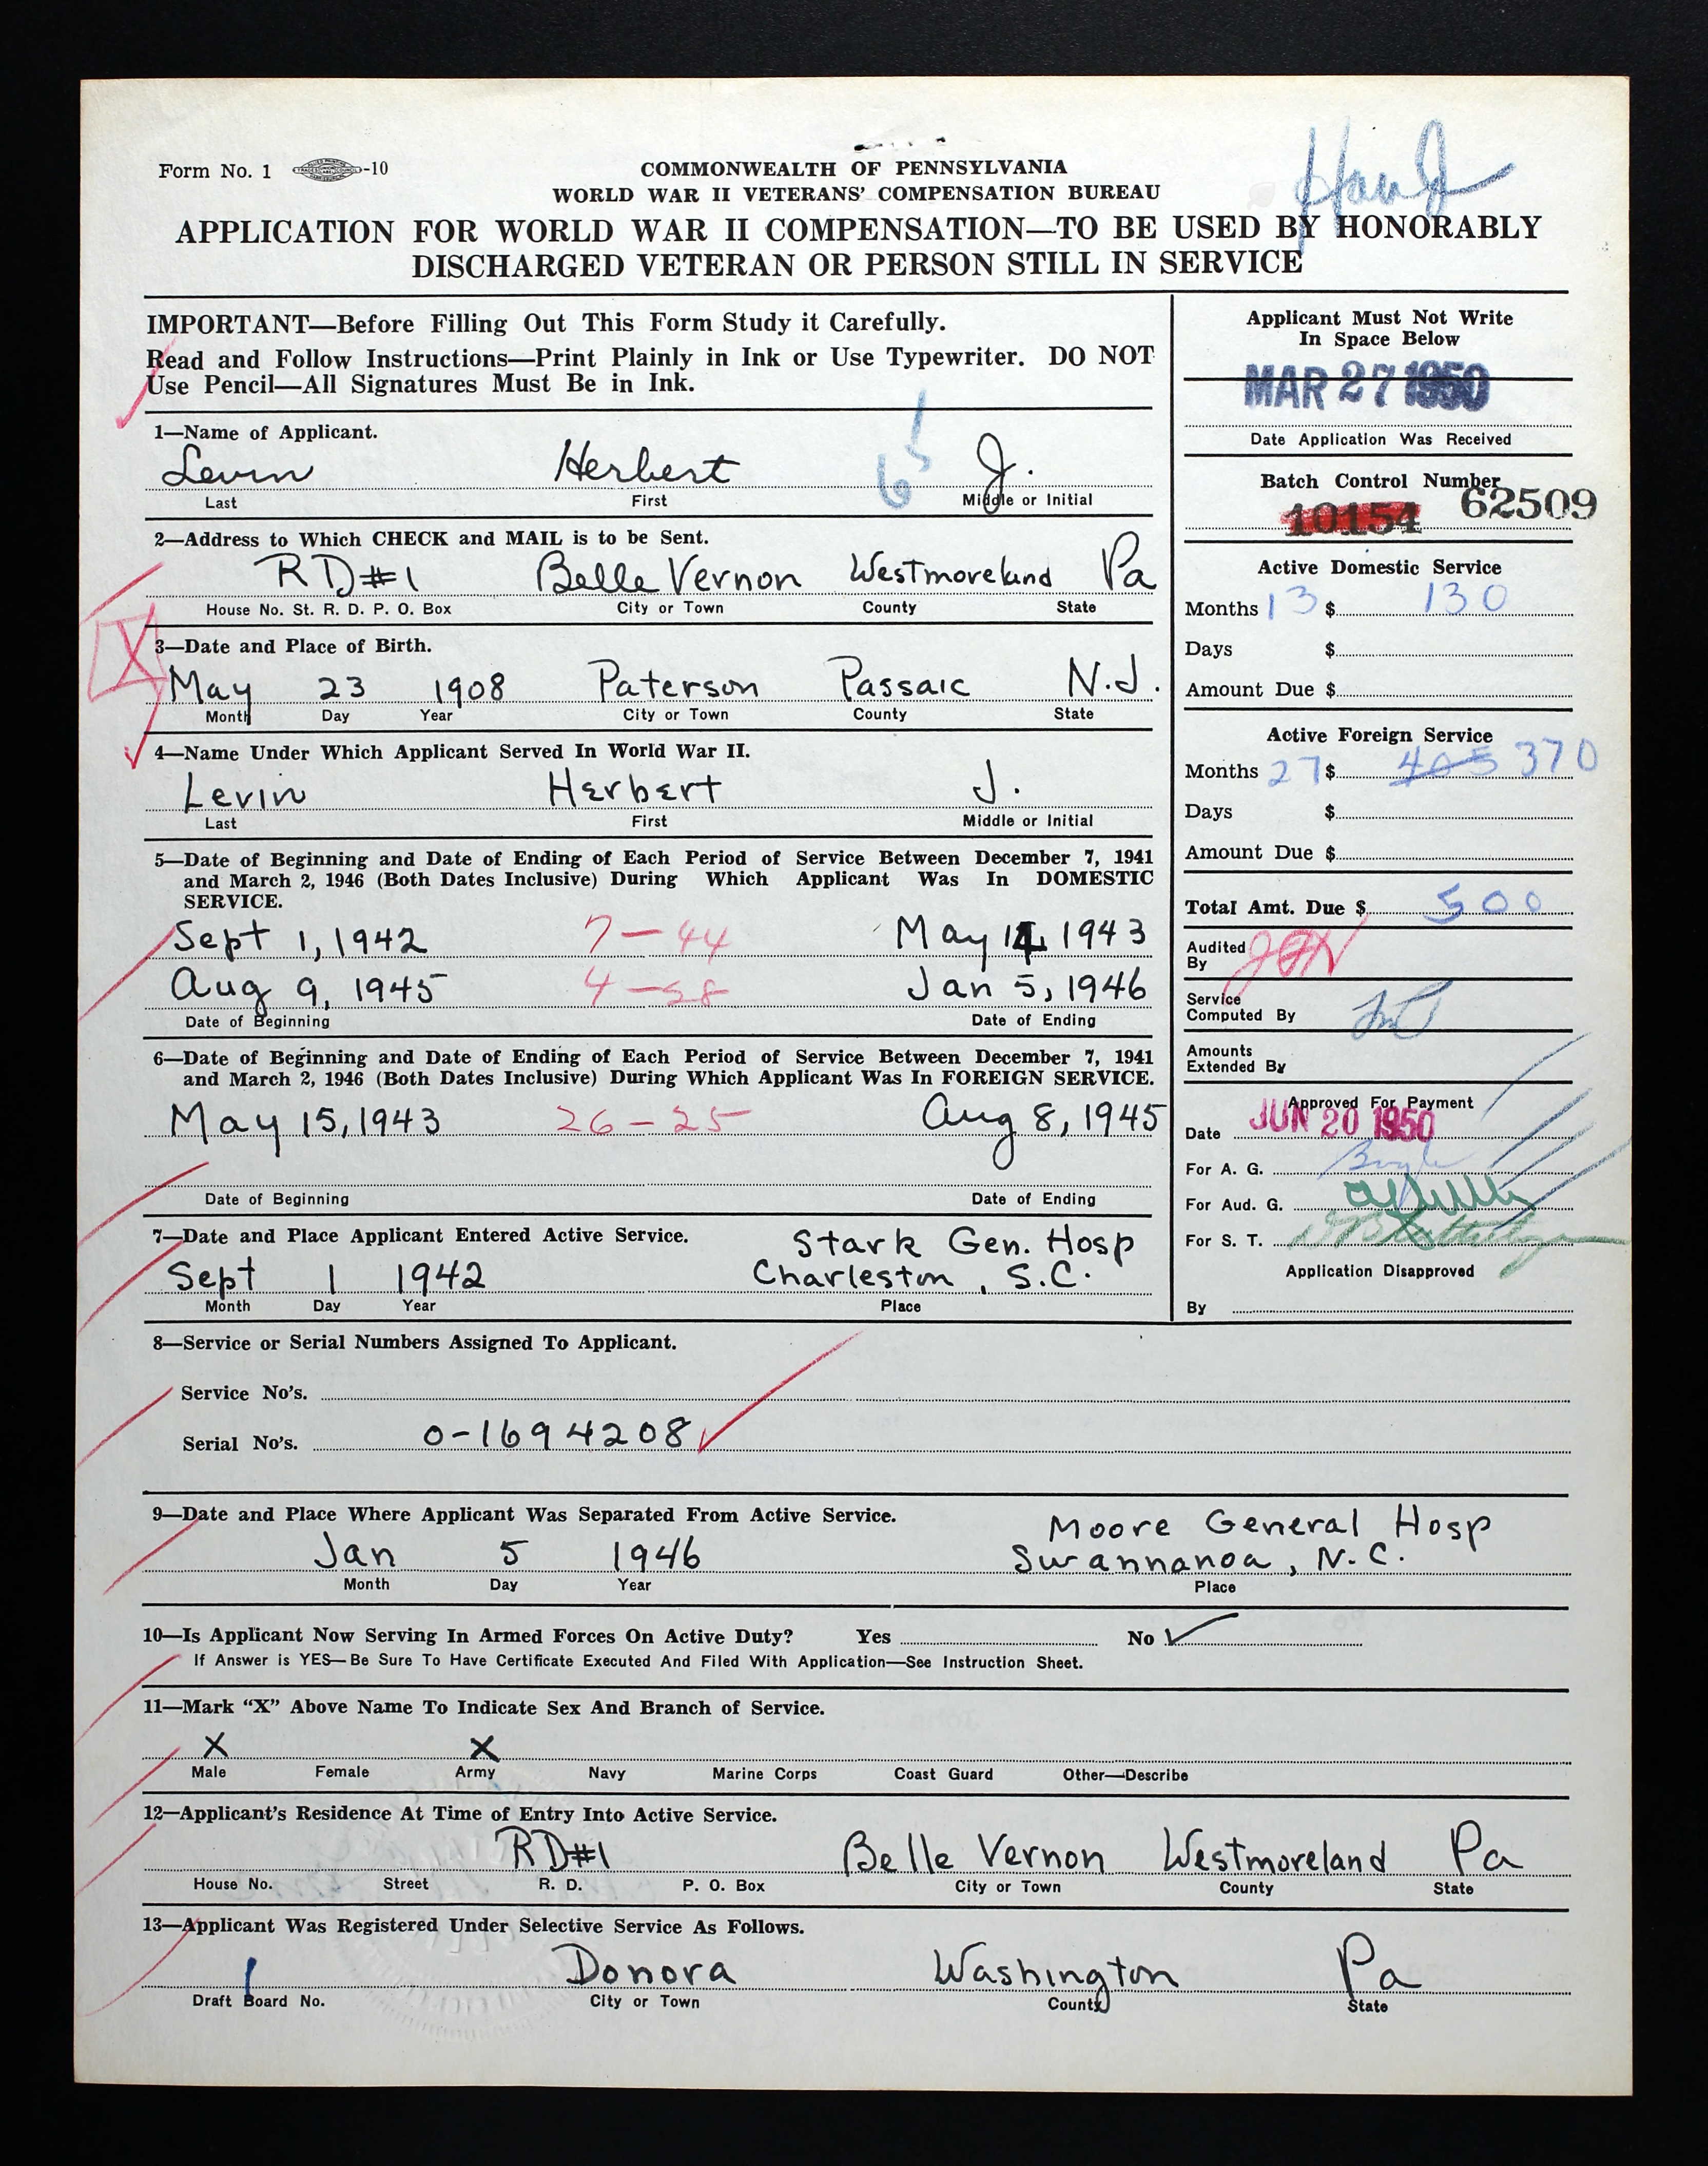 Form No. 1 -10
COMMONWEALTH OF PENNSYLVANIA
WORLD WAR II VETERANS' COMPENSATION BUREAU
APPLICATION FOR WORLD WAR II COMPENSATION—TO BE USED BY HONORABLY
DISCHARGED VETERAN OR PERSON STILL IN SERVICE
IMPORTANT—Before Filling Out This Form Study it Carefully.
Read and Follow Instructions—Print Plainly in Ink or Use Typewriter. DO NOT
Use Pencil—All Signatures Must Be in Ink.
1—Name of Applicant.
Levin Herbert J.
Last First Middle or Initial
2—Address to Which CHECK and MAIL is to be Sent.
RD#1 Belle Vernon Westmoreland Pa
House No. St. R. D. P. O. Box City or Town County State
3—Date and Place of Birth.
May 23 1908 Paterson Passaic N.J.
Month Day Year City or Town County State
4—Name Under Which Applicant Served In World War II.
Levin Herbert J.
Last First Middle or Initial
5—Date of Beginning and Date of Ending of Each Period of Service Between December 7, 1941
and March 2, 1946 (Both Dates Inclusive) During Which Applicant Was In DOMESTIC
SERVICE.
Sept 1, 1942 7-44 May 14, 1943
Aug 9, 1945 4-28 Jan 5, 1946
Date of Beginning Date of Ending
6—Date of Beginning and Date of Ending of Each Period of Service Between December 7, 1941
and March 2, 1946 (Both Dates Inclusive) During Which Applicant Was In FOREIGN SERVICE.
May 15, 1943 26-25 Aug 8, 1945
Date of Beginning Date of Ending
7—Date and Place Applicant Entered Active Service.
Stark Gen. Hosp
Sept 1 1942 Charleston, S.C.
Month Day Year Place
Applicant Must Not Write
In Space Below
MAR 27 1950
Date Application Was Received
Batch Control Number
10154 62509
Active Domestic Service
Months 13 $ 130
Days $
Amount Due $
Active Foreign Service
Months 27 $ 405 370
Days $
Amount Due $
Total Amt. Due $ 500
Audited
By
Service
Computed By
Amounts
Extended By
Approved For Payment
Date JUN 20 1950
For A. G.
For Aud. G.
For S. T.
Application Disapproved
By
8—Service or Serial Numbers Assigned To Applicant.
Service No's.
Serial No's. 0-1694208
9—Date and Place Where Applicant Was Separated From Active Service.
Moore General Hosp
Jan 5 1946 Swannanoa, N.C.
Month Day Year Place
10—Is Applicant Now Serving In Armed Forces On Active Duty? Yes No ✓
If Answer is YES—Be Sure To Have Certificate Executed And Filed With Application—See Instruction Sheet.
11—Mark "X" Above Name To Indicate Sex And Branch of Service.
X X
Male Female Army Navy Marine Corps Coast Guard Other—Describe
12—Applicant's Residence At Time of Entry Into Active Service.
RD#1 Belle Vernon Westmoreland Pa
House No. Street R. D. P. O. Box City or Town County State
13—Applicant Was Registered Under Selective Service As Follows.
1 Donora Washington Pa
Draft Board No. City or Town County State